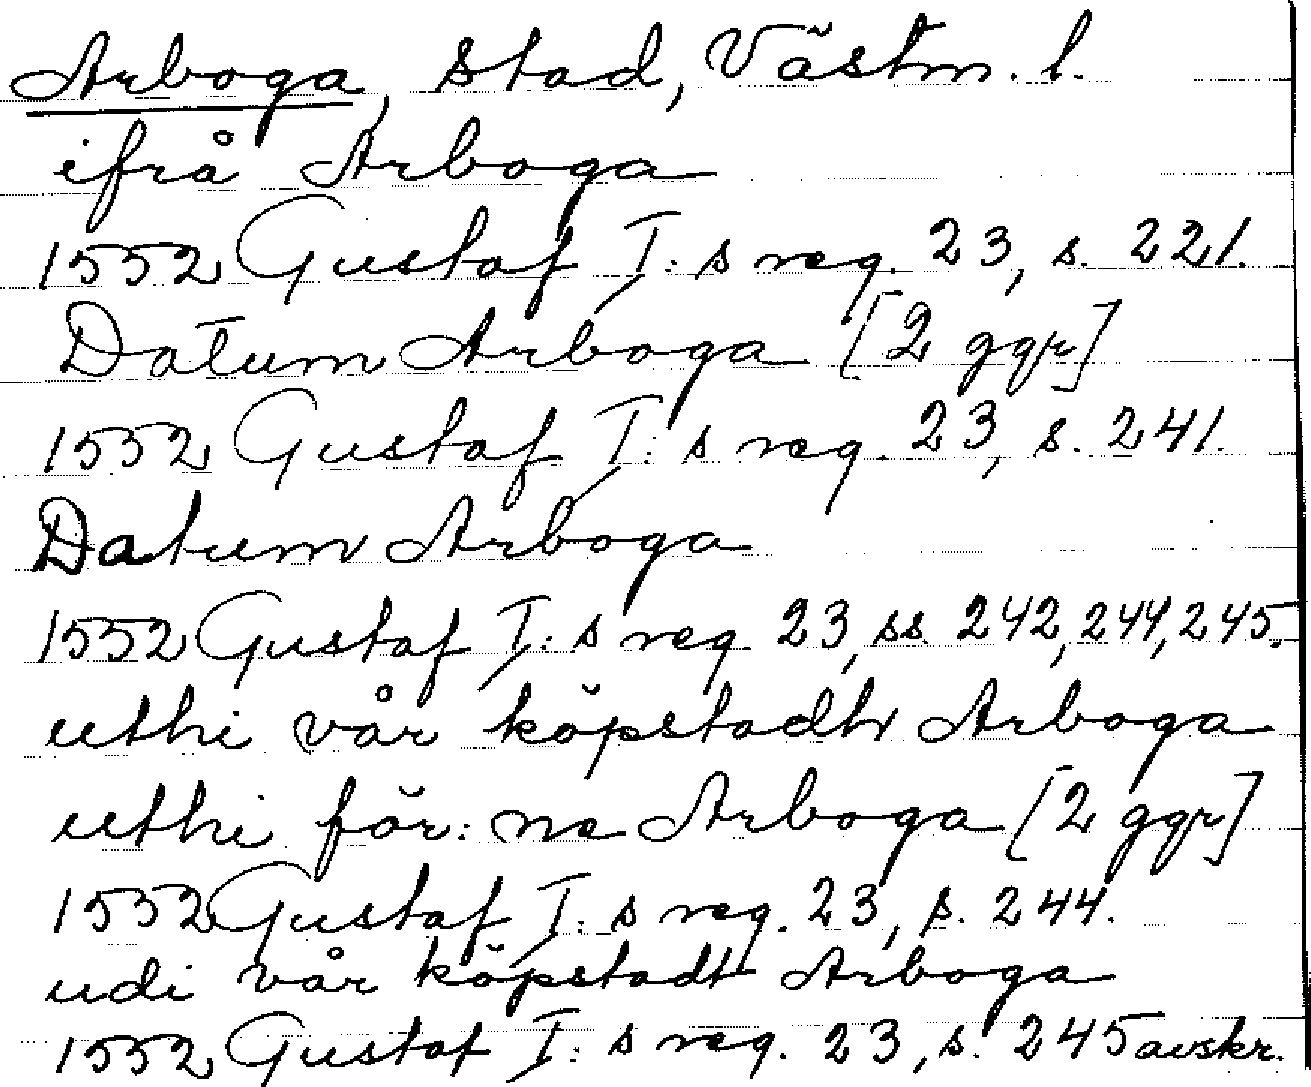 Arboga, stad, Västm. l.
ifrå Arboga
1552 Gustaf I:s reg. 23, s. 221.
Datum Arboga [2 ggr]
1552 Gustaf I:s reg. 23, s. 241.
Datum Arboga
1552 Gustaf I:s reg 23, ss 242, 244, 245.
uthi vår köpstadh Arboga
uthi för:ne Arboga [2 ggr]
1552 Gustaf I:s reg. 23, s. 244.
udi vår köpstadt Arboga
1552 Gustaf I:s reg. 23, s. 245 avskr.